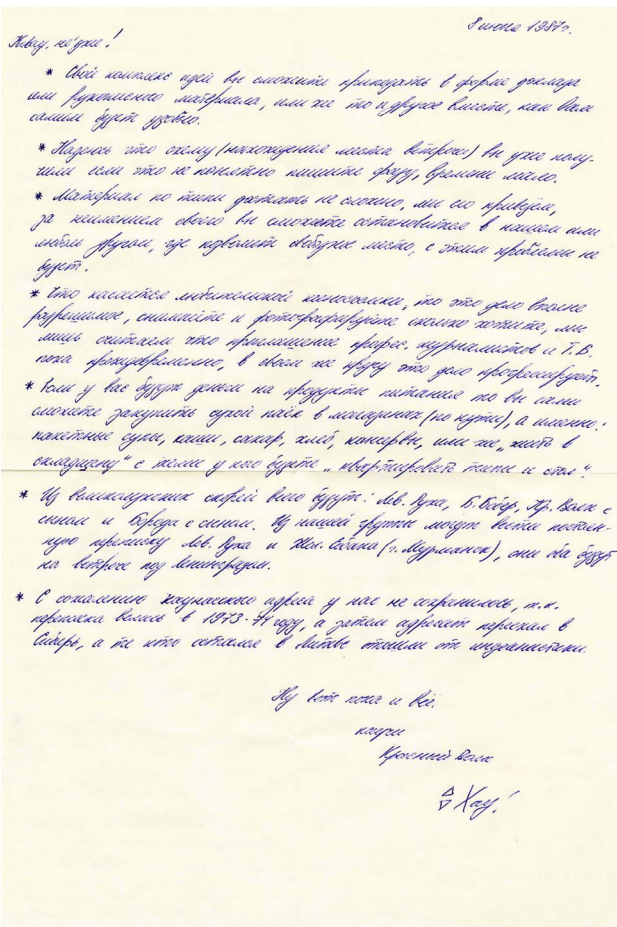 8 июня 1987г.
Квау, не'дже!
* Свой комплекс идей вы сможите приподать в форме доклада
или рукописного материала, или же то и другое вместе, как Вам
самим будет удобно.
* Надеюсь что схему (нахождения места встречи) вы уже полу-
чили если что не понятно пишите сразу, времени мало.
* Материал по типи достать не сложно, мы его привезём,
за неимением своего вы сможете остановится в нашем или
любом другом, где позволит свободное место, с этим проблемы не
будет.
* Что касается любительской киносъёмки, то это дело вполне
разрешимое, снимайте и фотографируйте сколько хотите, мы
лишь считаем что приглашение профес. журналистов и Т.В.
пока преждевременно, в своём же кругу это дело прогрессирует.
* Если у вас будут деньги на продукты питания то вы сами
сможете закупить сухой паёк в магазинах (по пути), а именно:
пакетные супы, каши, сахар, хлеб, консервы, или же „жить в
складчину" с теми у кого будете „квартировать типи и стол".
* Из великолукских скорей всего будут: Лев. Рука, Б. Бобёр, Кр. Волк с
сыном и Борода с сыном. Из нашей группы могут вести постоян-
ную переписку Лев. Рука и Жел. Собака (г. Мурманск), они оба будут
на встрече под Ленинградом.
* С сожалению каунаского адреса у нас не сохранилось, т.к.
переписка велась в 1973-74 году, а затем адресат переехал в
Сибирь, а те кто остался в Литве отошли от индеанистики.
Ну вот пока и всё.
Красный Волк
Хау!